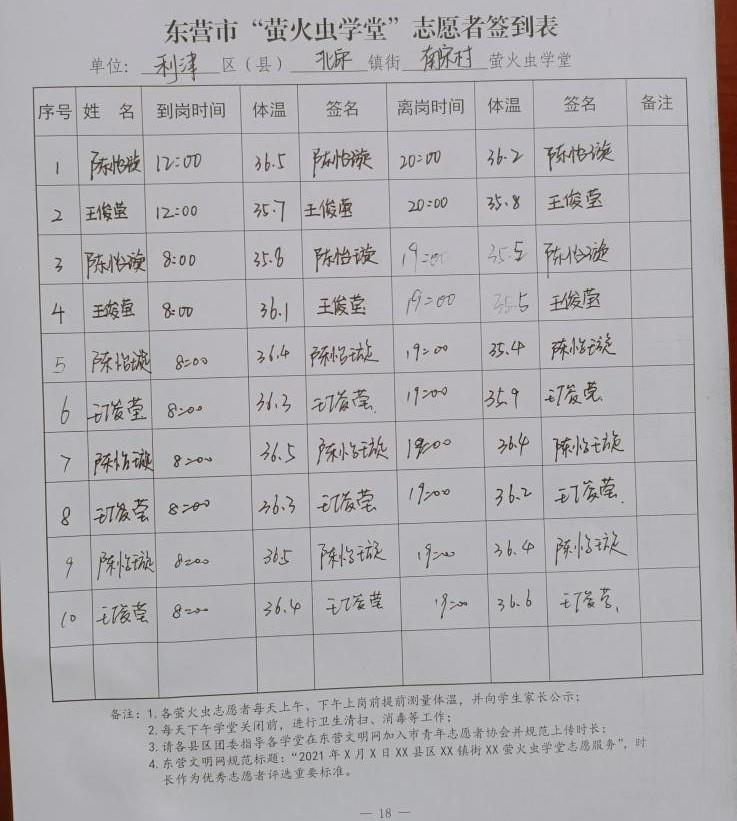 东营市“萤火虫学堂”志愿者签到表
单位: 利津 区(县) 北宋 镇街 南宋村 萤火虫学堂
序号 姓 名 到岗时间 体温 签名 离岗时间 体温 签名 备注
1 陈怡璇 12:00 36.5 陈怡璇 20:00 36.2 陈怡璇
2 王俊莹 12:00 35.7 王俊莹 20:00 35.8 王俊莹
3 陈怡璇 8:00 35.8 陈怡璇 19:00 35.5 陈怡璇
4 王俊莹 8:00 36.1 王俊莹 19:00 35.5 王俊莹
5 陈怡璇 8:00 36.4 陈怡璇 19:00 35.4 陈怡璇
6 王俊莹 8:00 36.3 王俊莹 19:00 35.9 王俊莹
7 陈怡璇 8:00 36.5 陈怡璇 19:00 36.4 陈怡璇
8 王俊莹 8:00 36.3 王俊莹 19:00 36.2 王俊莹
9 陈怡璇 8:00 365 陈怡璇 19:00 36.4 陈怡璇
10 王俊莹 8:00 36.4 王俊莹 19:00 36.6 王俊莹
备注: 1.各萤火虫志愿者每天上午、下午上岗前提前测量体温,并向学生家长公示;
2.每天下午学堂关闭前,进行卫生清扫、消毒等工作;
3.请各县区团委指导各学堂在东营文明网加入市青年志愿者协会并规范上传时长;
4.东营文明网规范标题:“2021年X月X日XX县区XX镇街XX萤火虫学堂志愿服务”,时
长作为优秀志愿者评选重要标准。
— 18 —